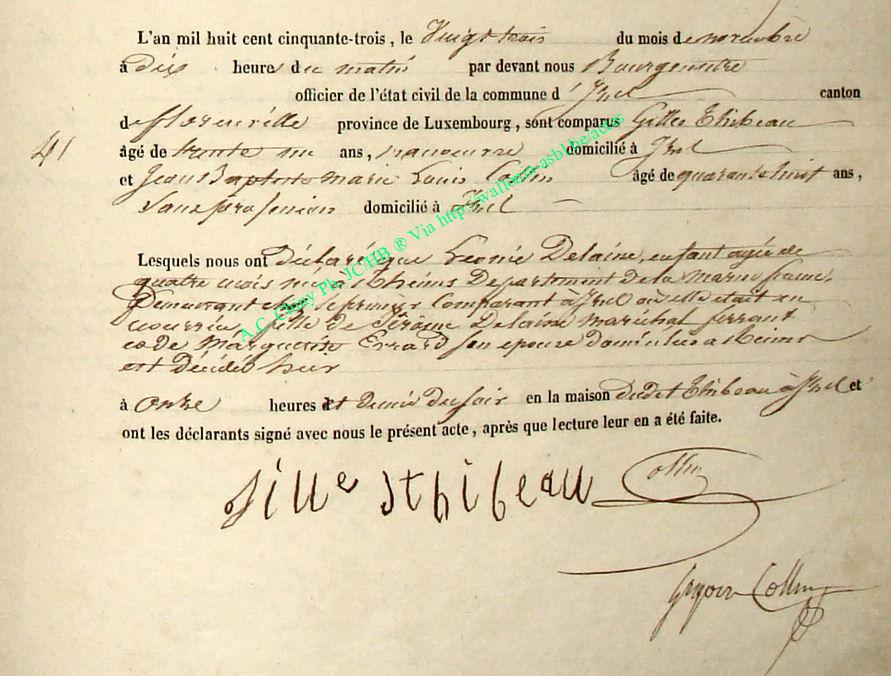 L'an mil huit cent cinquante-trois, le Vingt trois du mois de novembre
à dix heure du matin par devant nous Bourgmestre
officier de l'état civil de la commune d'Izel canton
de florenville province de Luxembourg, sont comparus Gilles Thibeau
41 âgé de trente un ans, manoeuvre domicilié à Izel
et Jean Baptiste marie Louis Collin âgé de quarante huit ans,
Sans profession domicilié à Izel
Lesquels nous ont déclaré que Léonie Delaine, enfant agée de
quatre mois née à Rheims Departement de la marne france,
Demeurant chez le premier Comparant à Izel ou elle était en
nourrice, fille de Jérôme Delaine maréchal ferrant
et de Marguerite Errard son epouse domiciliés a Rheims
est Décédée hier
à onze heures et demie du soir en la maison dudit Thibeau à Izel et
ont les déclarants signé avec nous le présent acte, après que lecture leur en a été faite.
Jille Thibeau Collin
Collin
A.C. Chiny Ph. JC/HB ® Via http://wallonia-asbl.be/actes